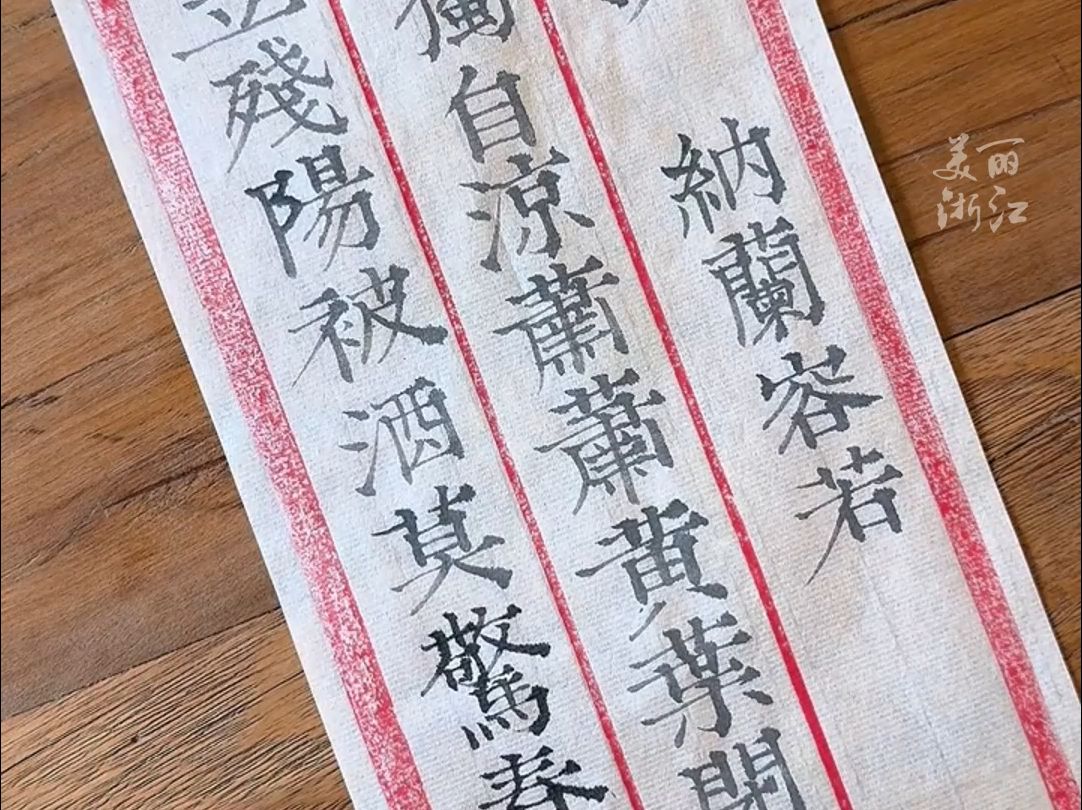 納蘭容若
獨自涼蕭蕭黃葉閉
立殘陽被酒莫驚春
美丽
浙江